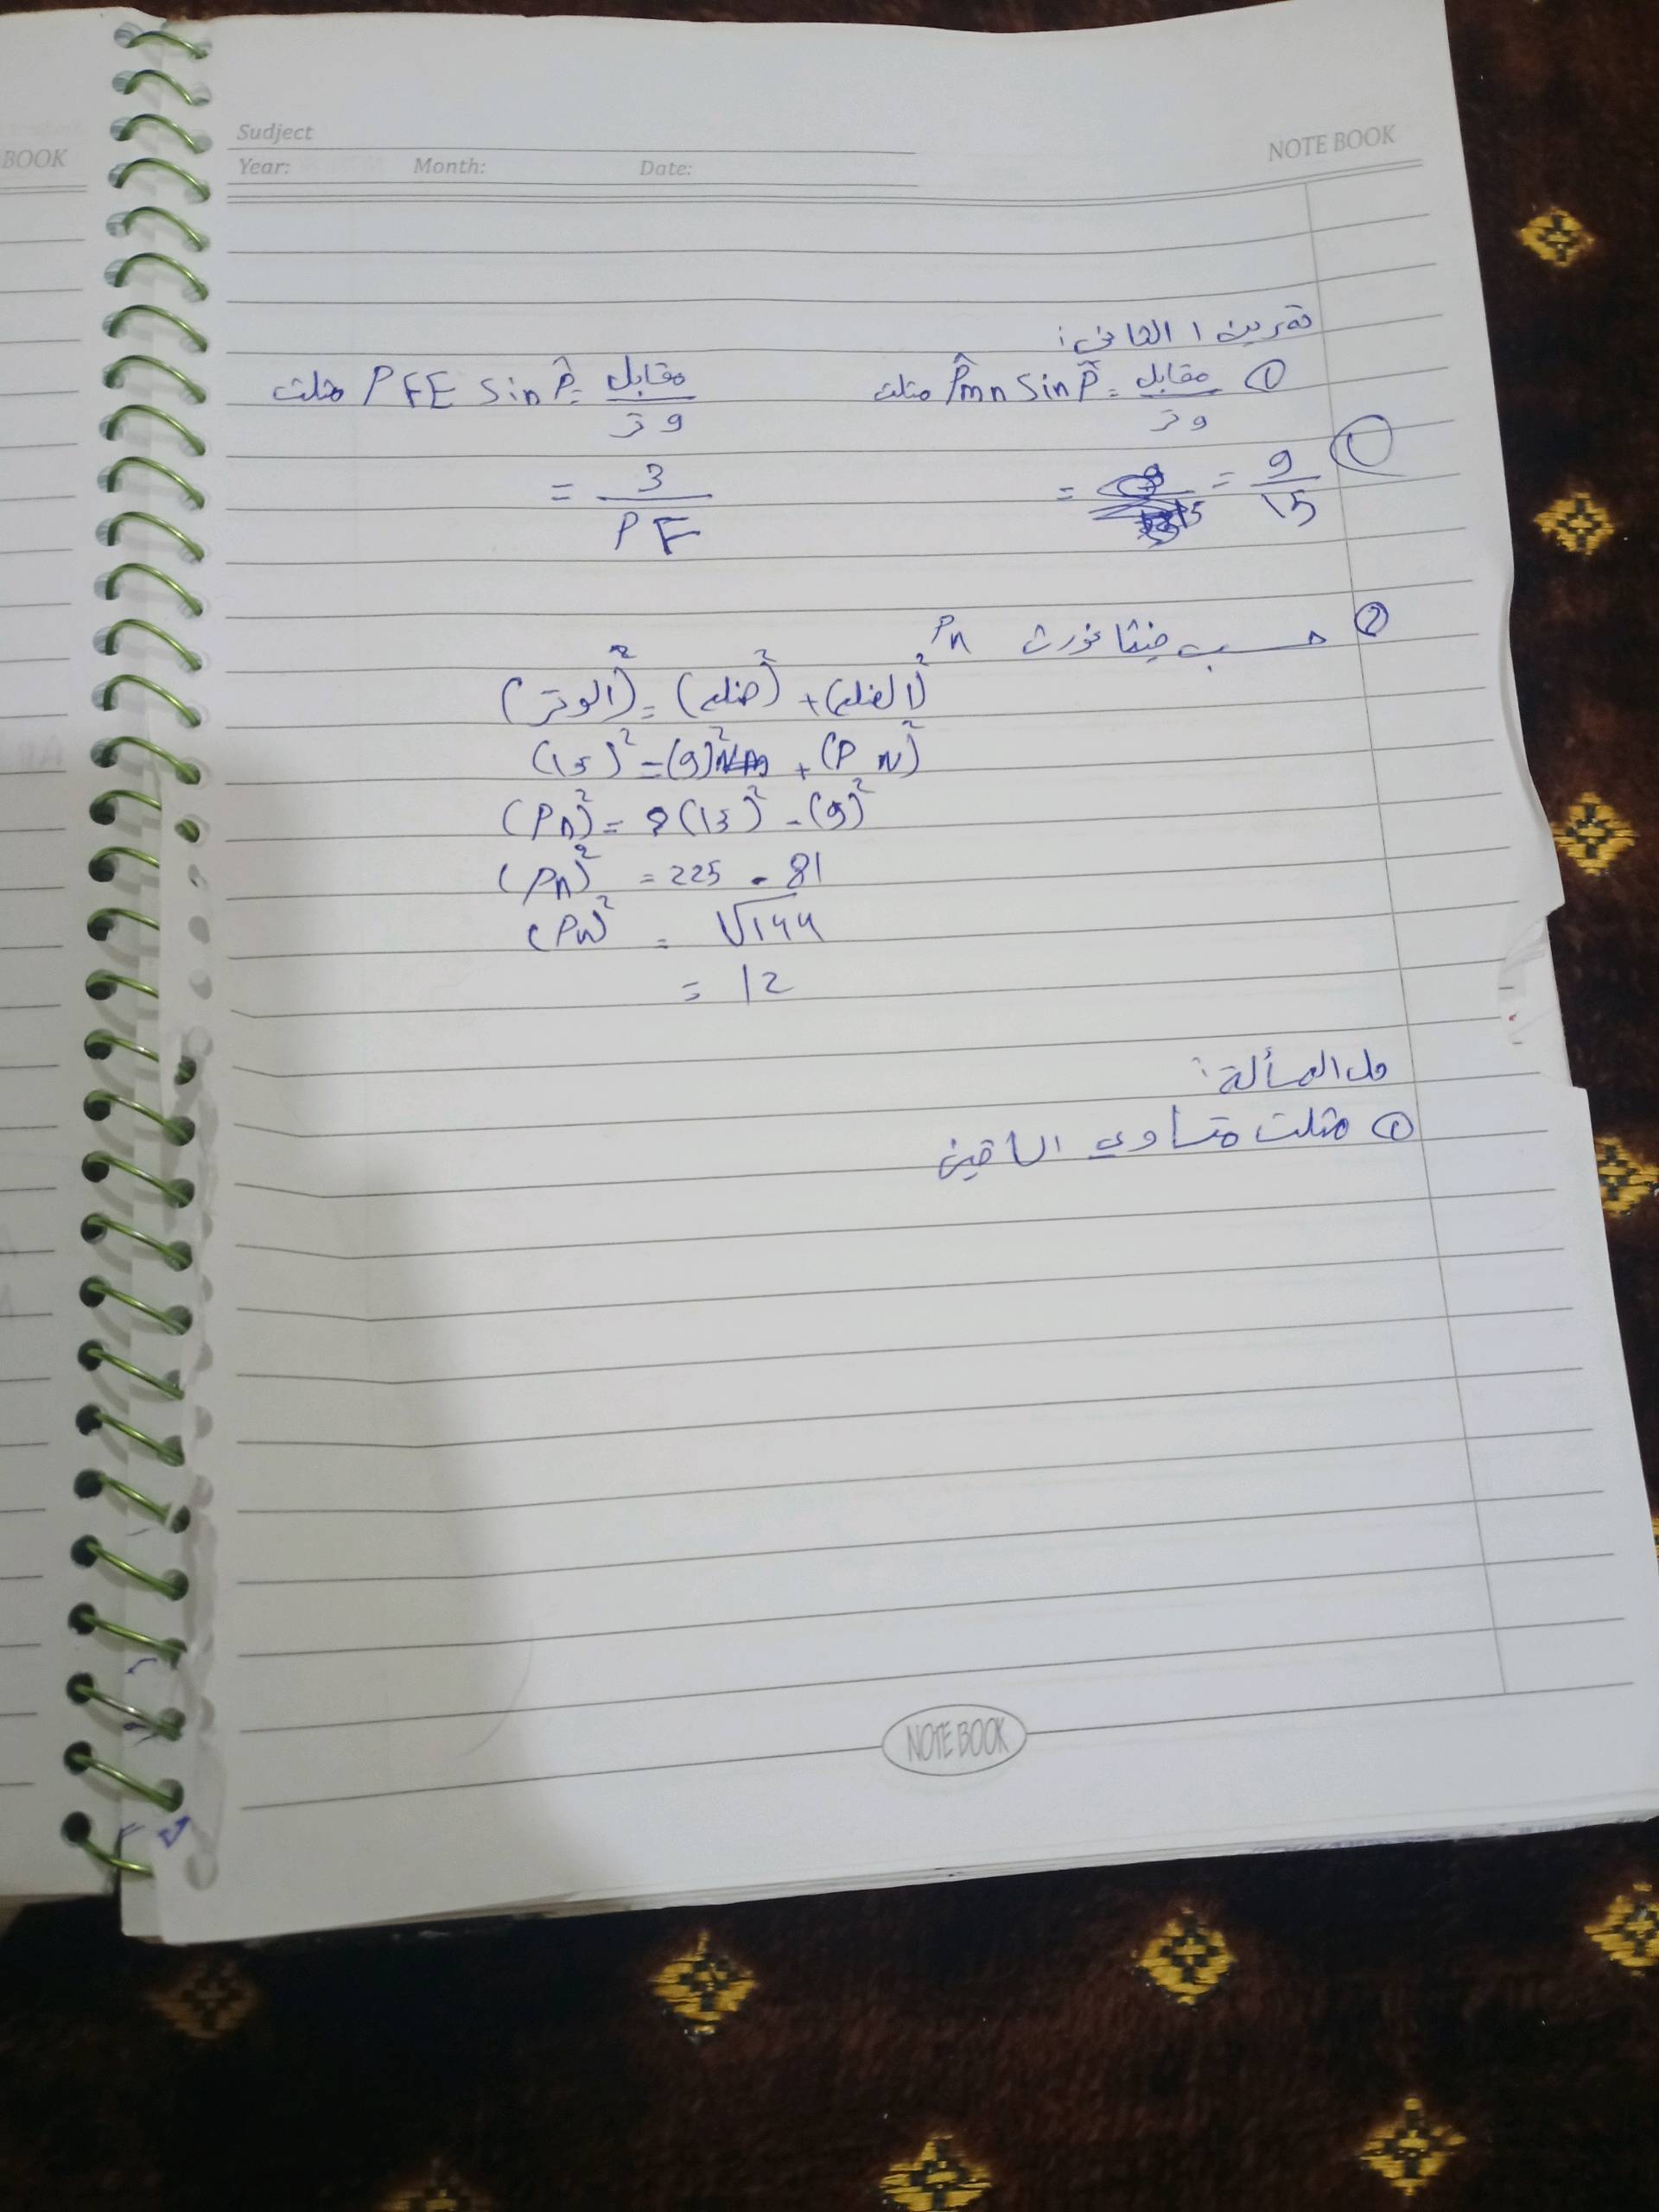 BOOK
Sudject
Year: Month: Date:
NOTE BOOK
تمرين الثاني:
① مثلث Pmn Sin P̂ = مقابل / وتر
مثلث PFE Sin P̂ = مقابل / وتر
① = 9/15 = 9/15
= 3/PF
② حسب فيثاغورث Pn
(الوتر)² = (ضلع)² + (الضلع)²
(15)² = (9)² + (PN)²
(Pn)² = (15)² - (9)²
(Pn)² = 225 - 81
(PN)² = √144
= 12
حل المسألة:
① مثلث متساوي الساقين
NOTE BOOK